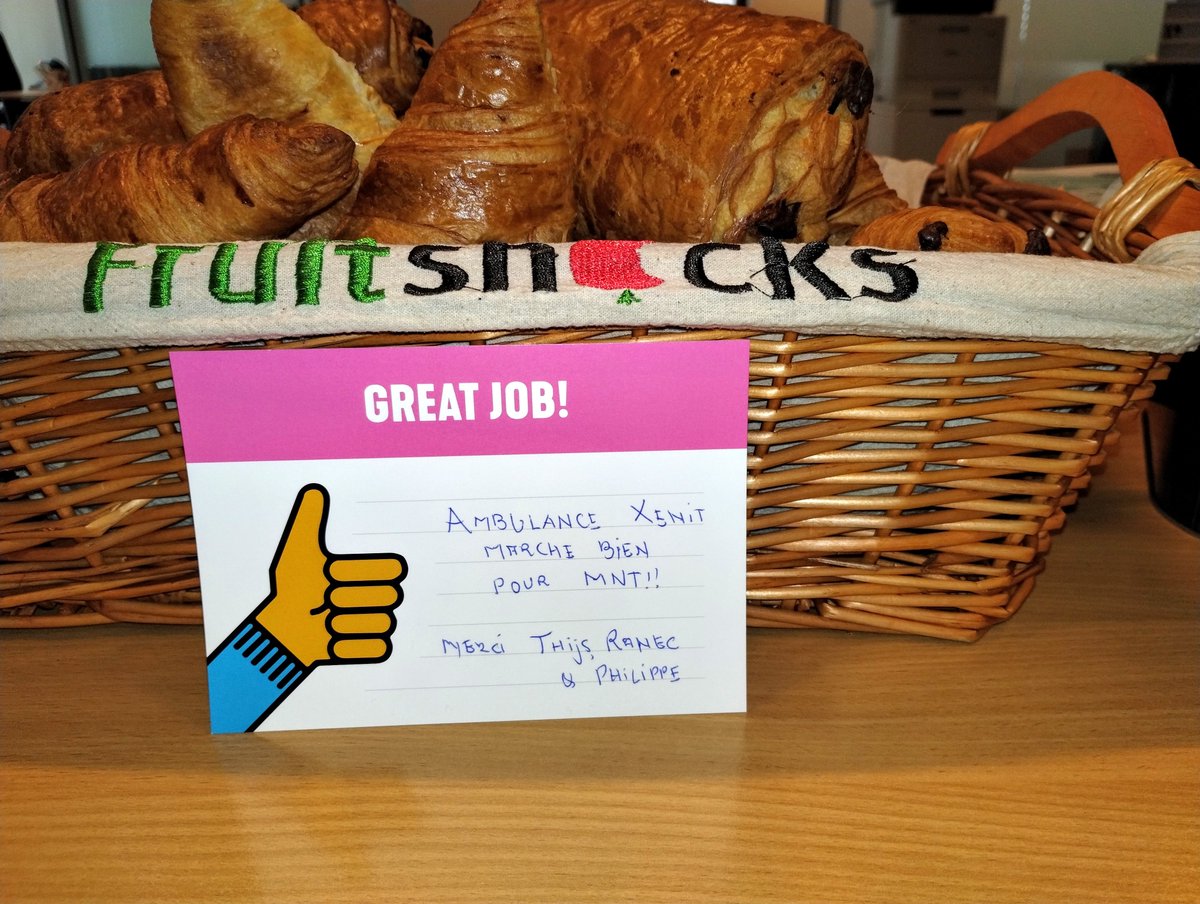 Fruitsnacks
GREAT JOB!
AMBULANCE XENIT
MARCHE BIEN
POUR MNT!!
MERCI THIJS, RANEC
& PHILIPPE